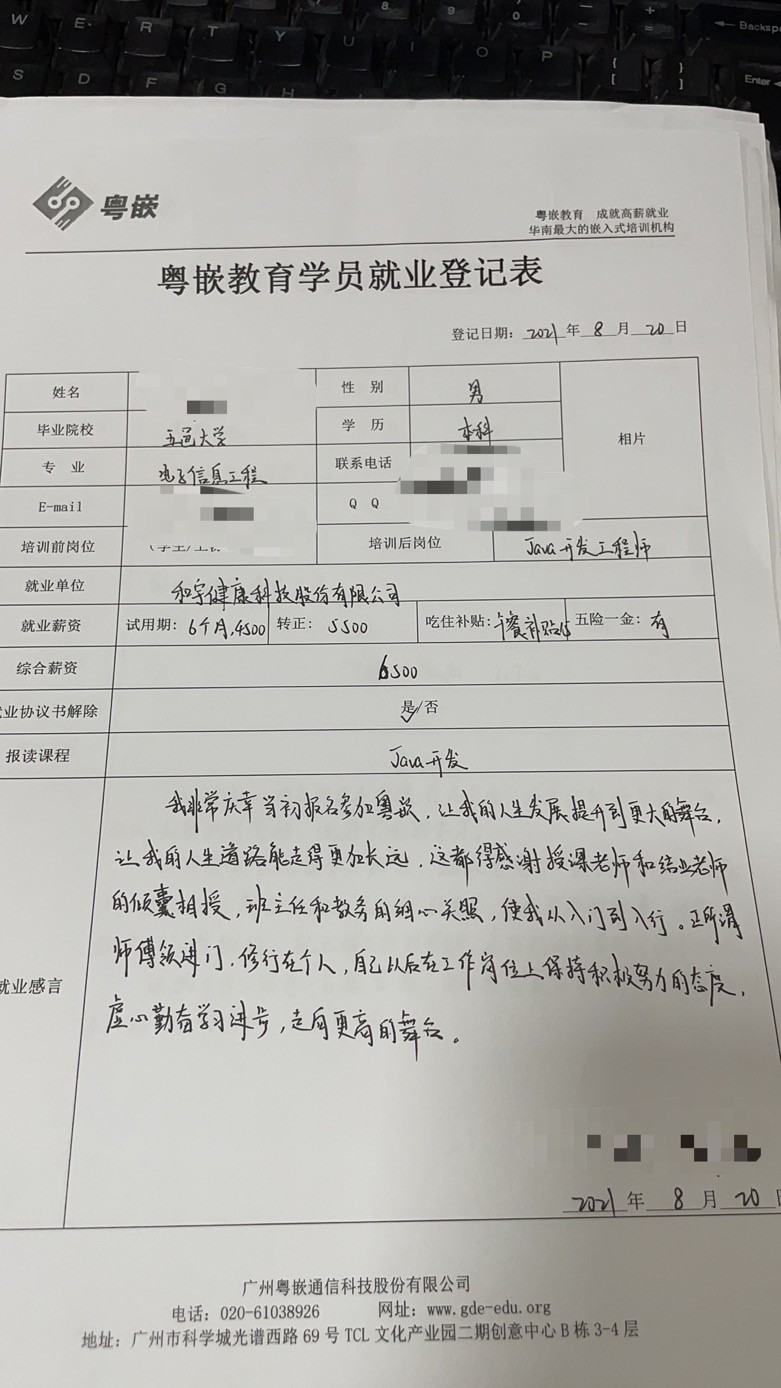 W E R T Y U I O P
S D F G H
Backspa
Enter
粤嵌
粤嵌教育 成就高薪就业
华南最大的嵌入式培训机构
粤嵌教育学员就业登记表
登记日期: 2021 年 8 月 20 日
姓名 性 别 男
毕业院校 五邑大学 学 历 本科
相片
专 业 电子信息工程 联系电话
E-mail Q Q
培训前岗位 培训后岗位 Java开发工程师
就业单位 和宇健康科技股份有限公司
就业薪资 试用期: 6个月,4500 转正: 5500 吃住补贴: 午餐补贴15 五险一金: 有
综合薪资 6500
业协议书解除 是/否
报读课程 Java开发
我非常庆幸当初报名参加粤嵌,让我的人生发展提升到更大的舞台,
让我的人生道路能走得更加长远,这都得感谢授课老师和结业老师
的倾囊相授,班主任和教务的细心关照,使我从入门到入行。正所谓
师傅领进门,修行在个人,自己以后在工作岗位上保持积极努力的态度,
就业感言
虚心勤奋学习进步,走向更高的舞台。
2021 年 8 月 20 日
广州粤嵌通信科技股份有限公司
电话: 020-61038926 网址: www.gde-edu.org
地址: 广州市科学城光谱西路 69 号 TCL 文化产业园二期创意中心 B 栋 3-4 层